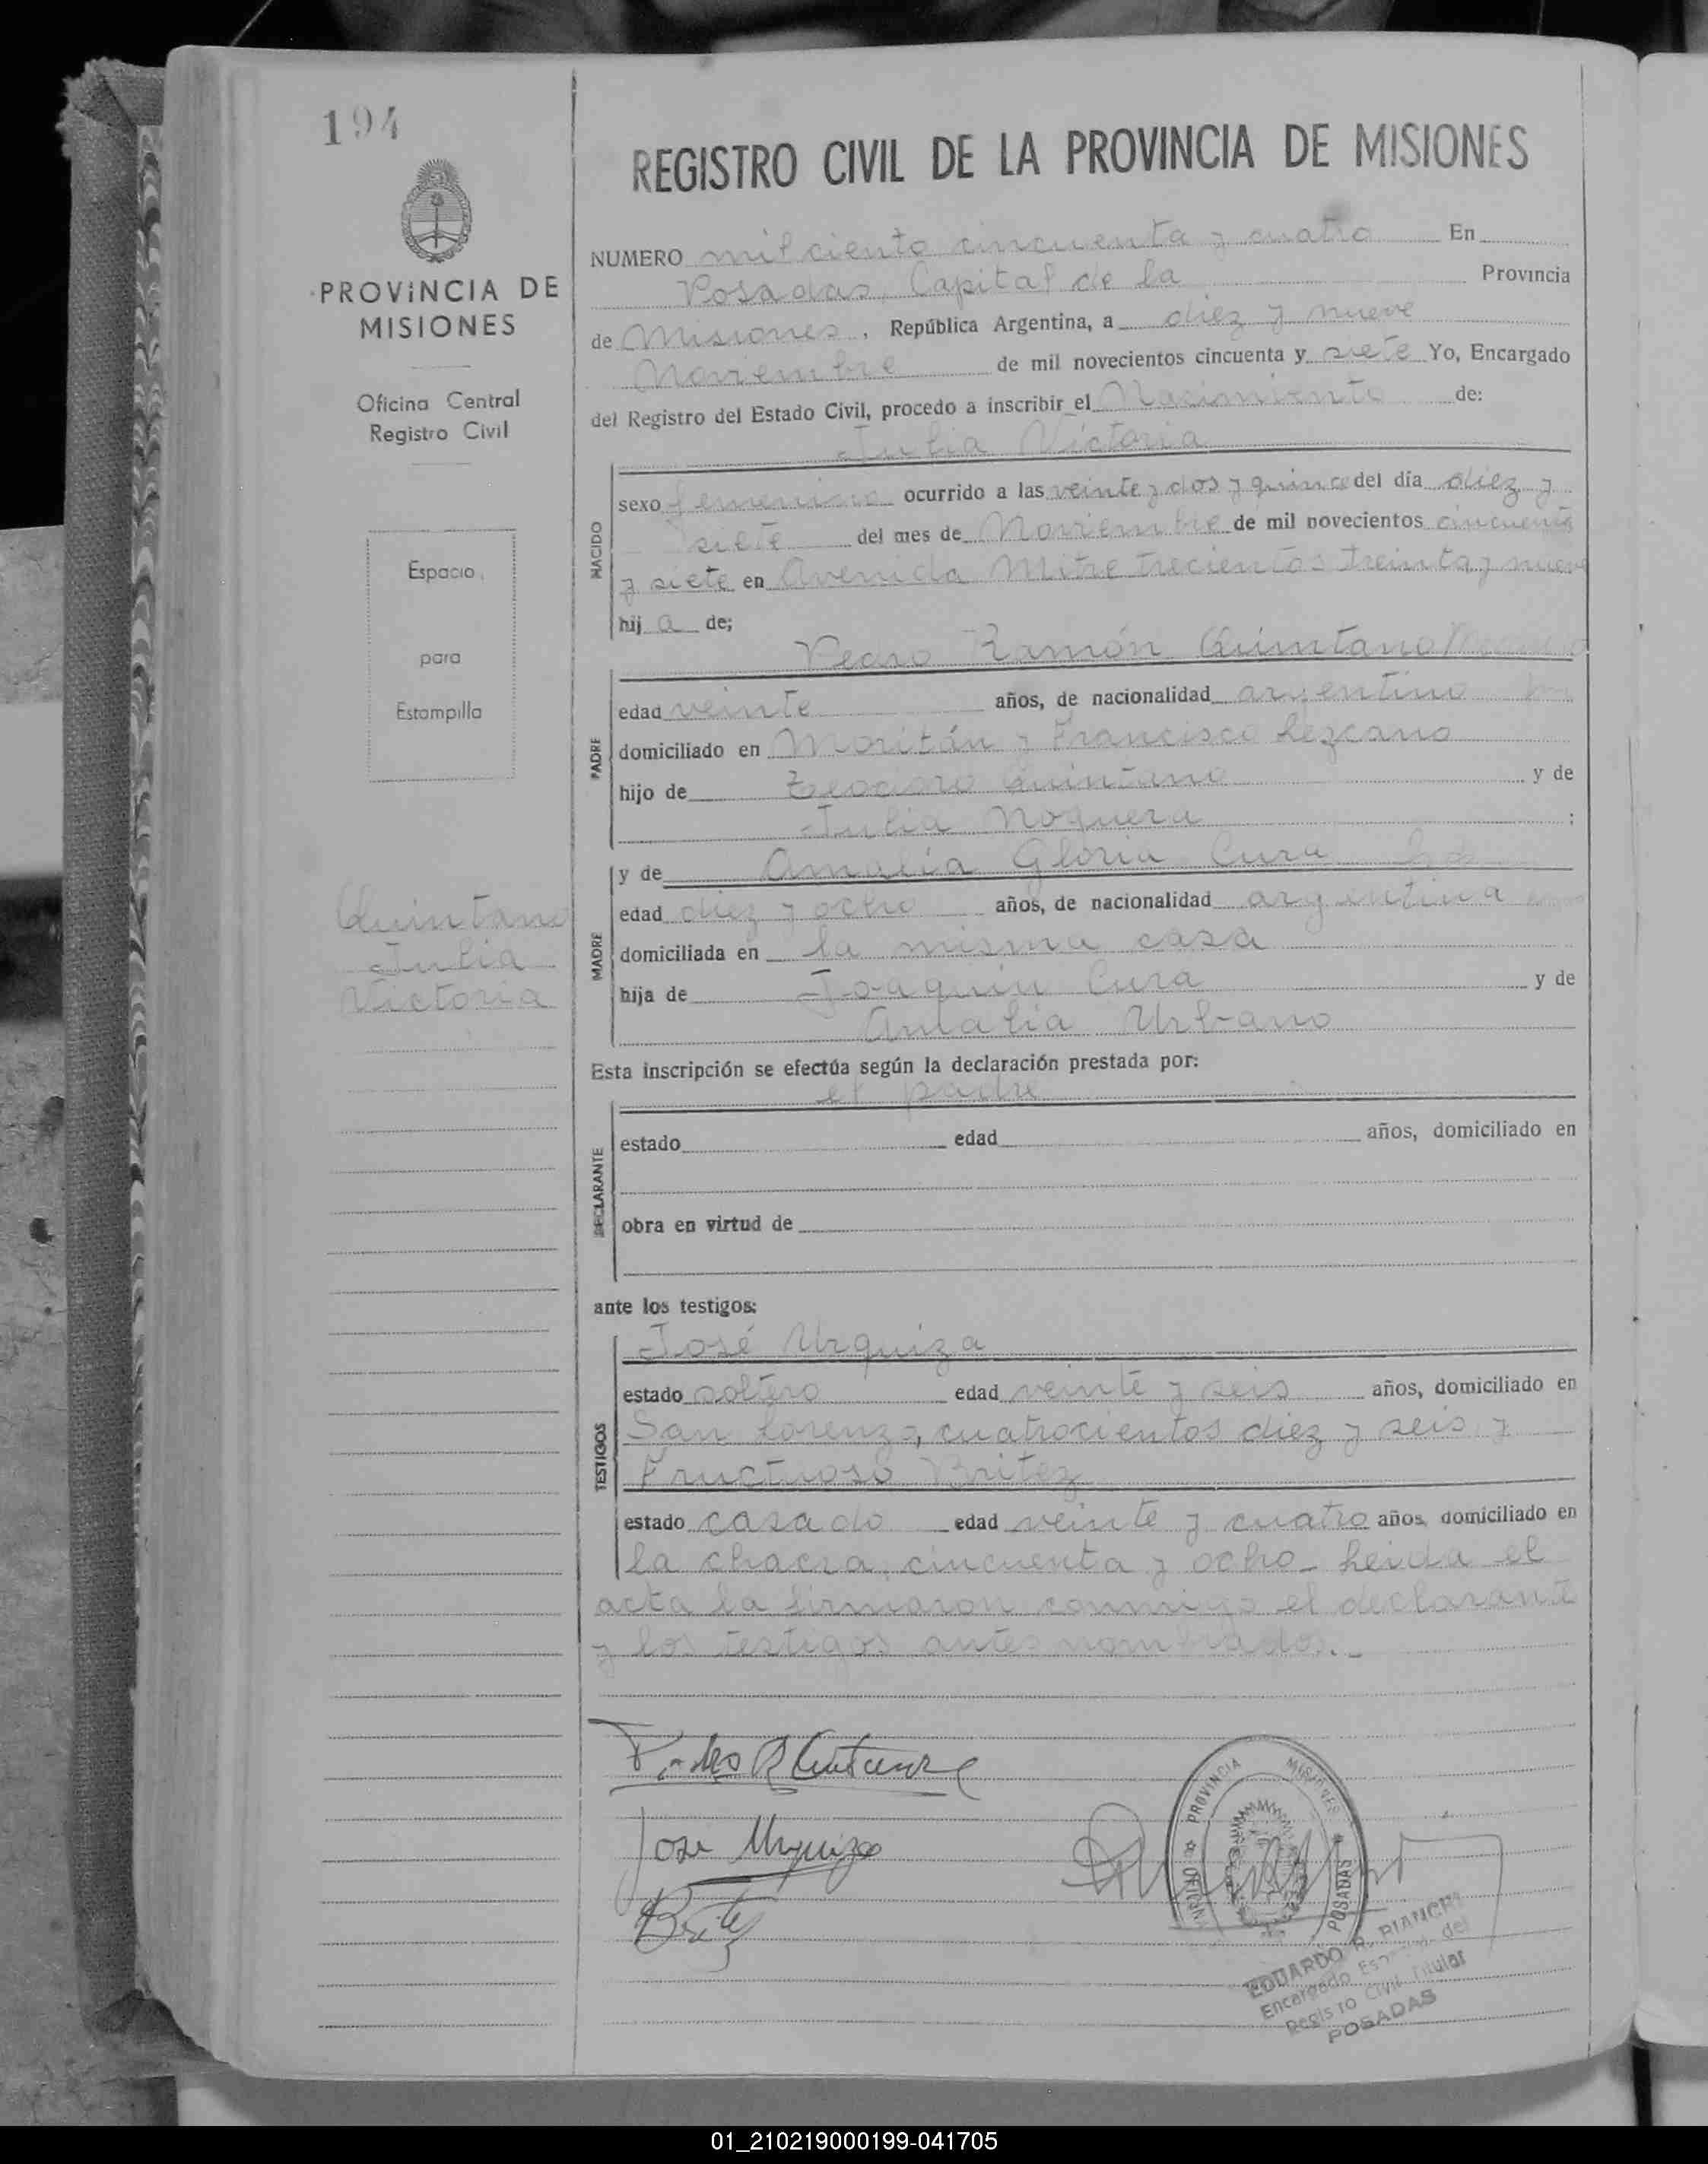 194
PROVINCIA DE
MISIONES
Oficina Central
Registro Civil
Espacio
para
Estampilla
Quintano
Julia
Victoria
REGISTRO CIVIL DE LA PROVINCIA DE MISIONES
NUMERO mil ciento cincuenta y cuatro En
Posadas, Capital de la Provincia
de Misiones, República Argentina, a diez y nueve
Noviembre de mil novecientos cincuenta y siete Yo, Encargado
del Registro del Estado Civil, procedo a inscribir el Nacimiento de:
Julia Victoria
NACIDO
sexo femenino ocurrido a las veinte y dos y quince del día diez y
siete del mes de Noviembre de mil novecientos cincuenta
y siete en Avenida Mitre trecientos treinta y nueve
hij a de;
Pedro Ramón Quintano
PADRE
edad veinte años, de nacionalidad argentino
domiciliado en Moritán y Francisco Lezcano
hijo de Teodoro Quintano y de
Julia Noguera :
MADRE
y de Amalia Gloria Cura
edad diez y ocho años, de nacionalidad argentina
domiciliada en la misma casa
hija de Joaquín Cura y de
Amalia Urbano
Esta inscripción se efectúa según la declaración prestada por:
el padre
DECLARANTE
estado edad años, domiciliado en
obra en virtud de
ante los testigos:
José Urquiza
TESTIGOS
estado soltero edad veinte y seis años, domiciliado en
San Lorenzo, cuatrocientos diez y seis y
Fructuoso Britez
estado casado edad veinte y cuatro años, domiciliado en
la chacra cincuenta y ocho_ Leída el
acta la firmaron conmigo el declarante
y los testigos antes nombrados._
Pedro R Quintano
Jose Urquiza
Britez
PROVINCIA MISIONES
POSADAS
EDUARDO R. BIANCHI
Encargado del
Registro Civil Titular
POSADAS
01_210219000199-041705